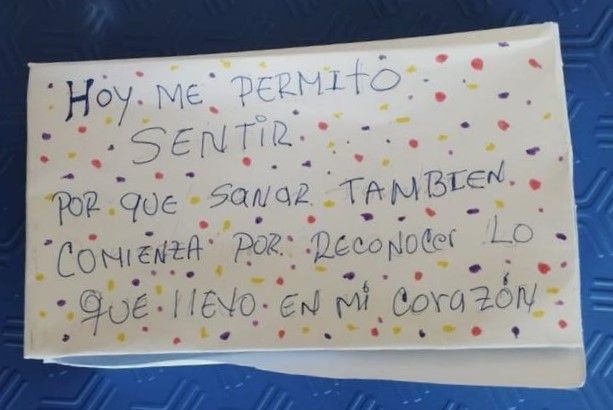 HOY ME PERMITO
SENTIR
POR QUE SANAR TAMBIEN
COMIENZA POR RECONOCER LO
QUE llEVO EN Mi CORAZÓN